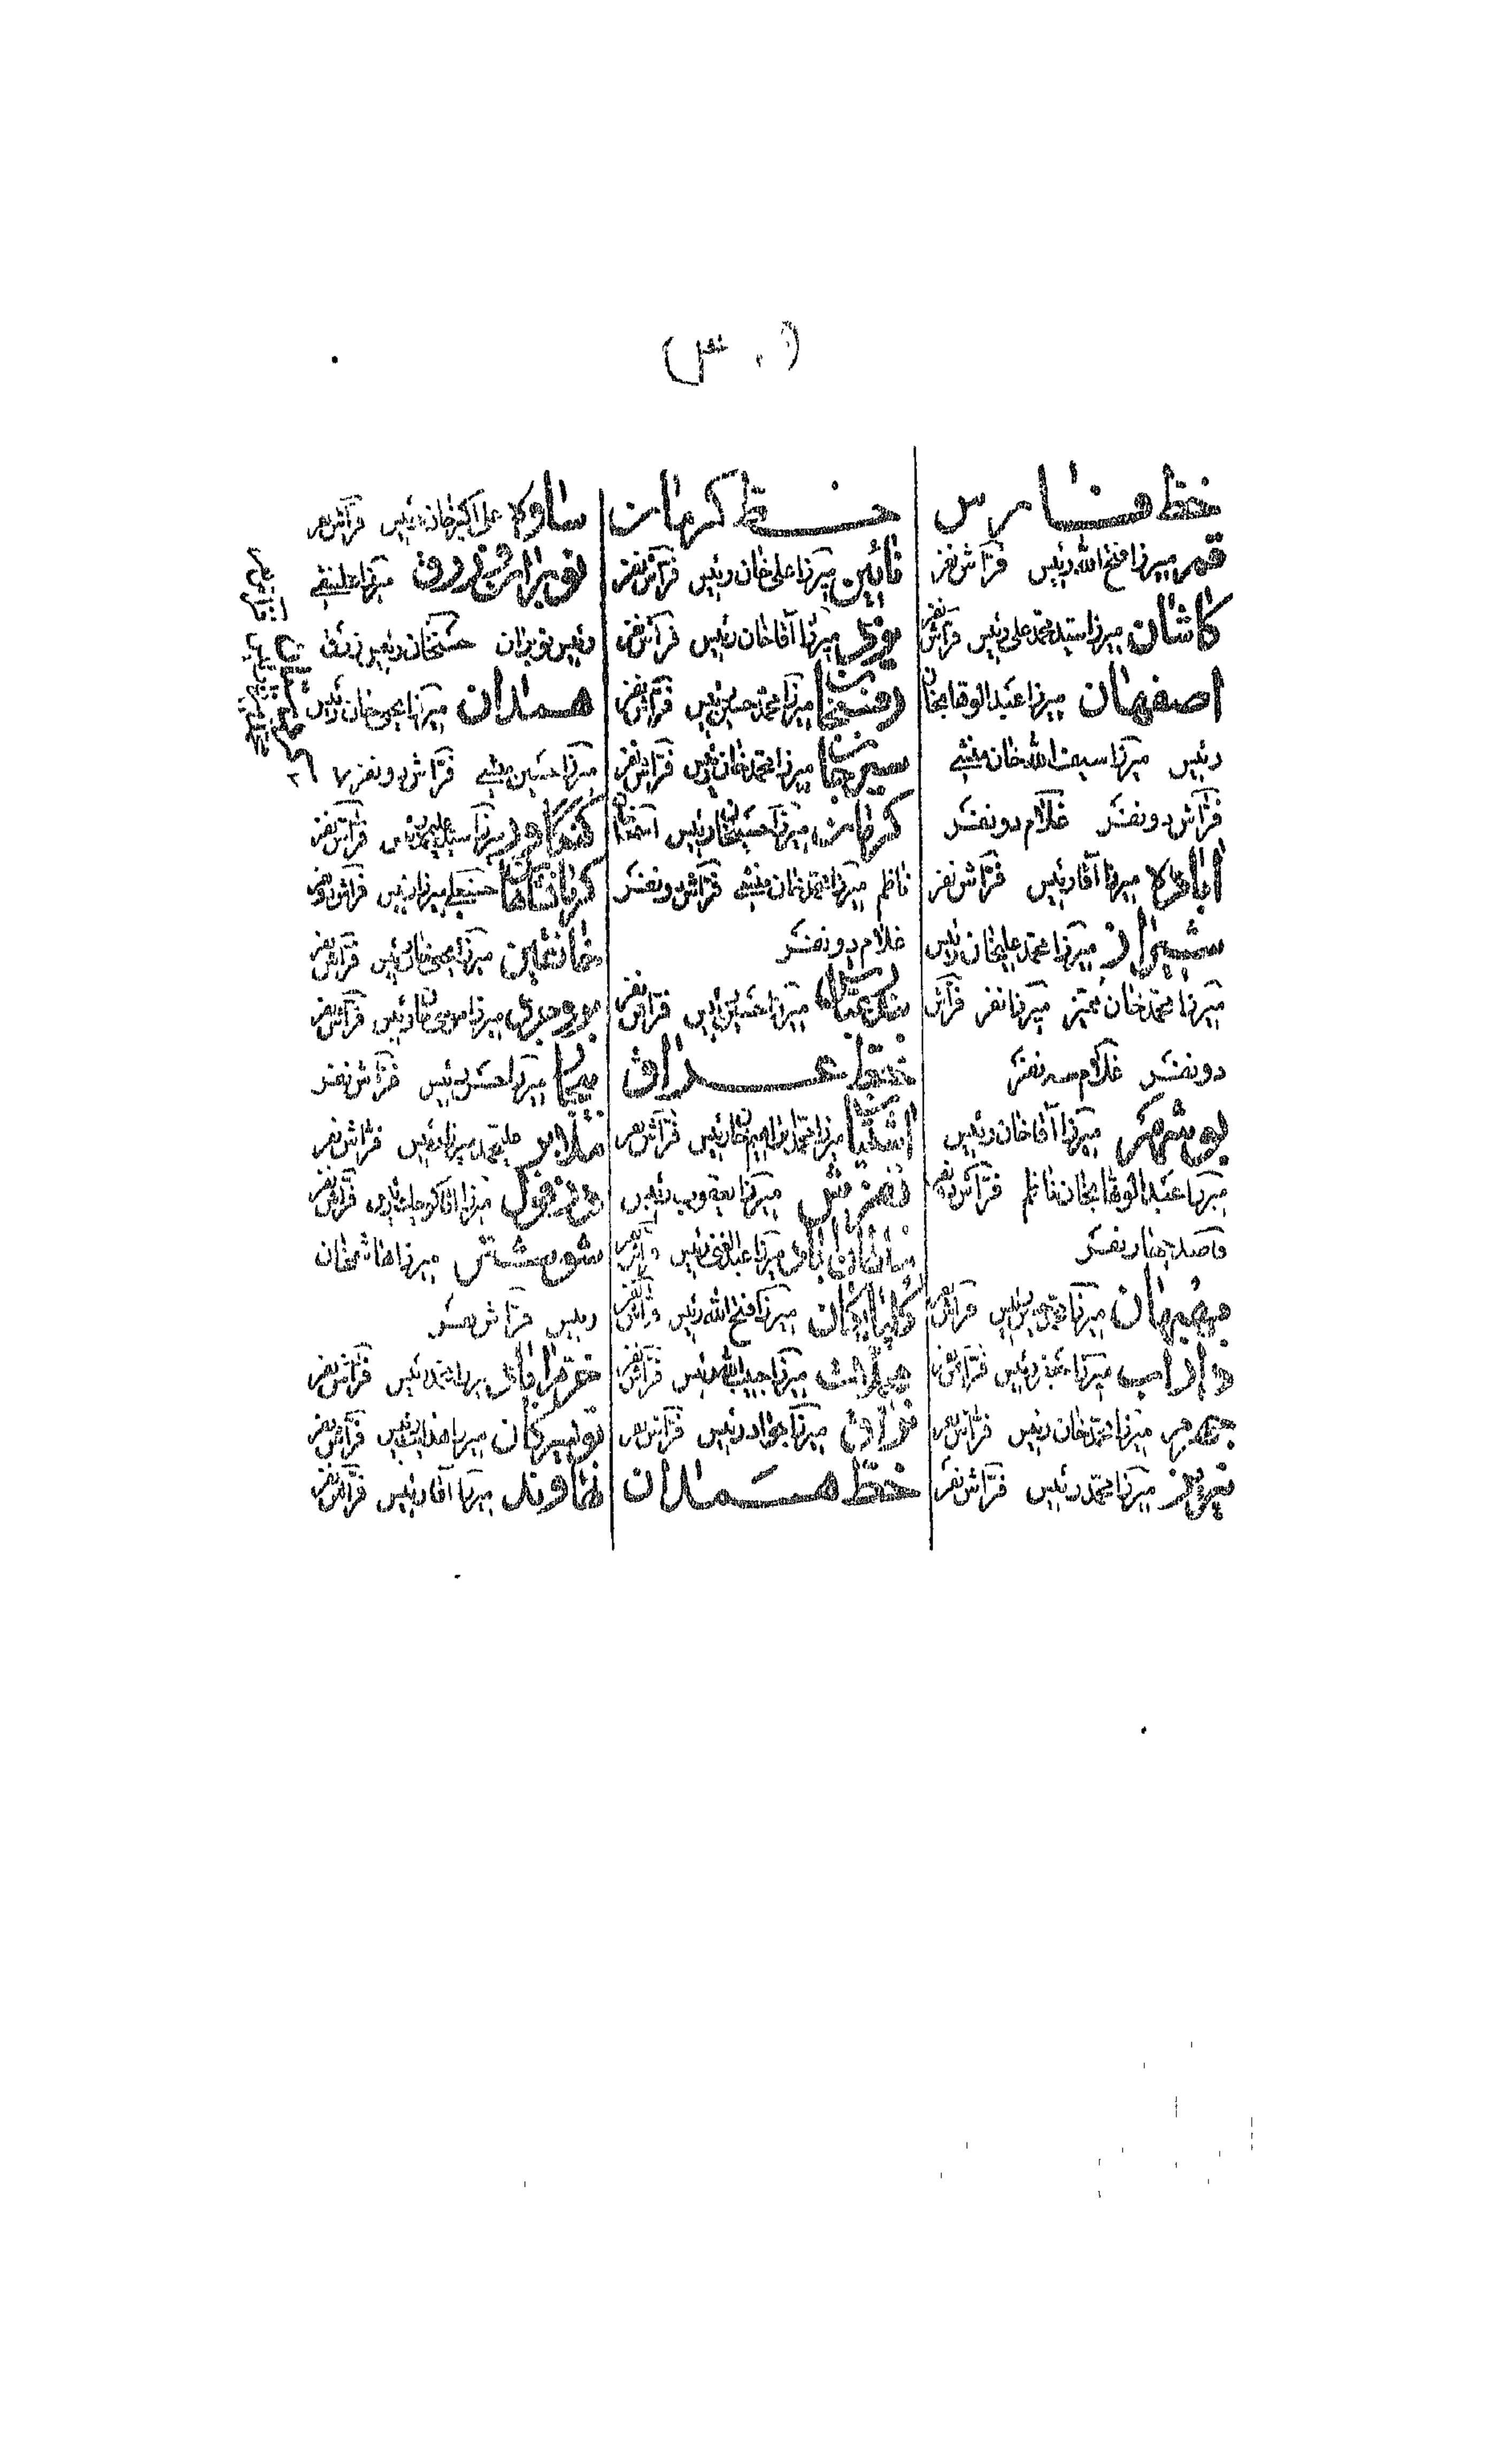 (۳۰)
خط فارس
قم میرزا فتح الله رئیس فراش نفر
کاشان میرزا سید محمد علی رئیس فراش نفر
اصفهان میرزا عبدالوهابخان
رئیس میرزا سیف الله خان منشی
فراش دو نفر غلام دو نفر
اباده میرزا آقا رئیس فراش نفر
شیراز میرزا محمد علیخان رئیس
میرزا محمد خان ممیز میرزا نفر فراش
دو نفر غلام سه نفر
بوشهر میرزا آقا خان رئیس
میرزا عبدالوهابخان ناظم فراش دو نفر
قاصد چهار نفر
بهبهان میرزا رئیس فراش نفر
داراب میرزا رئیس فراش نفر
جهرم میرزا محمد خان رئیس فراش نفر
نیریز میرزا محمد رئیس فراش نفر
خط کرمان
نائین میرزا علی خان رئیس فراش نفر
یزد میرزا آقا خان رئیس فراش نفر
رفسنجان میرزا محمد حسین رئیس فراش نفر
سیرجان میرزا محمد خان رئیس فراش نفر
کرمان میرزا حسینخان رئیس
ناظم میرزا محمد خان منشی فراش دو نفر
غلام دو نفر
میرزا حسین رئیس فراش نفر
خط عراق
آشتیان میرزا محمد ابراهیم خان رئیس فراش نفر
تفرش میرزا یعقوب رئیس
سلطان اباد میرزا عبدالغنی رئیس فراش نفر
گلپایگان میرزا فتح الله رئیس فراش نفر
محلات میرزا حبیب الله رئیس فراش نفر
میرزا جواد رئیس فراش نفر
خط همدان
ساوه علی اکبر خان رئیس فراش نفر
نوبران و زرق میرزا منشی
رئیس نوبران حسنخان رئیس زرق
همدان میرزا خان رئیس
میرزا حسین منشی فراش دو نفر
کنگاور میرزا سید رئیس فراش نفر
کرمانشاهان حسنعلی میرزا رئیس فراش دو نفر
خانقین میرزا رئیس فراش نفر
بروجرد میرزا موسی خان رئیس فراش نفر
بیجار میرزا حسن رئیس فراش نفر
ملایر میرزا رئیس فراش نفر
دزفول میرزا آقا کوچک رئیس فراش نفر
شوشتر میرزا هاشمخان
رئیس فراش نفر
خرم آباد میرزا محمد رئیس فراش نفر
تویسرکان میرزا رئیس فراش نفر
نهاوند میرزا آقا رئیس فراش نفر